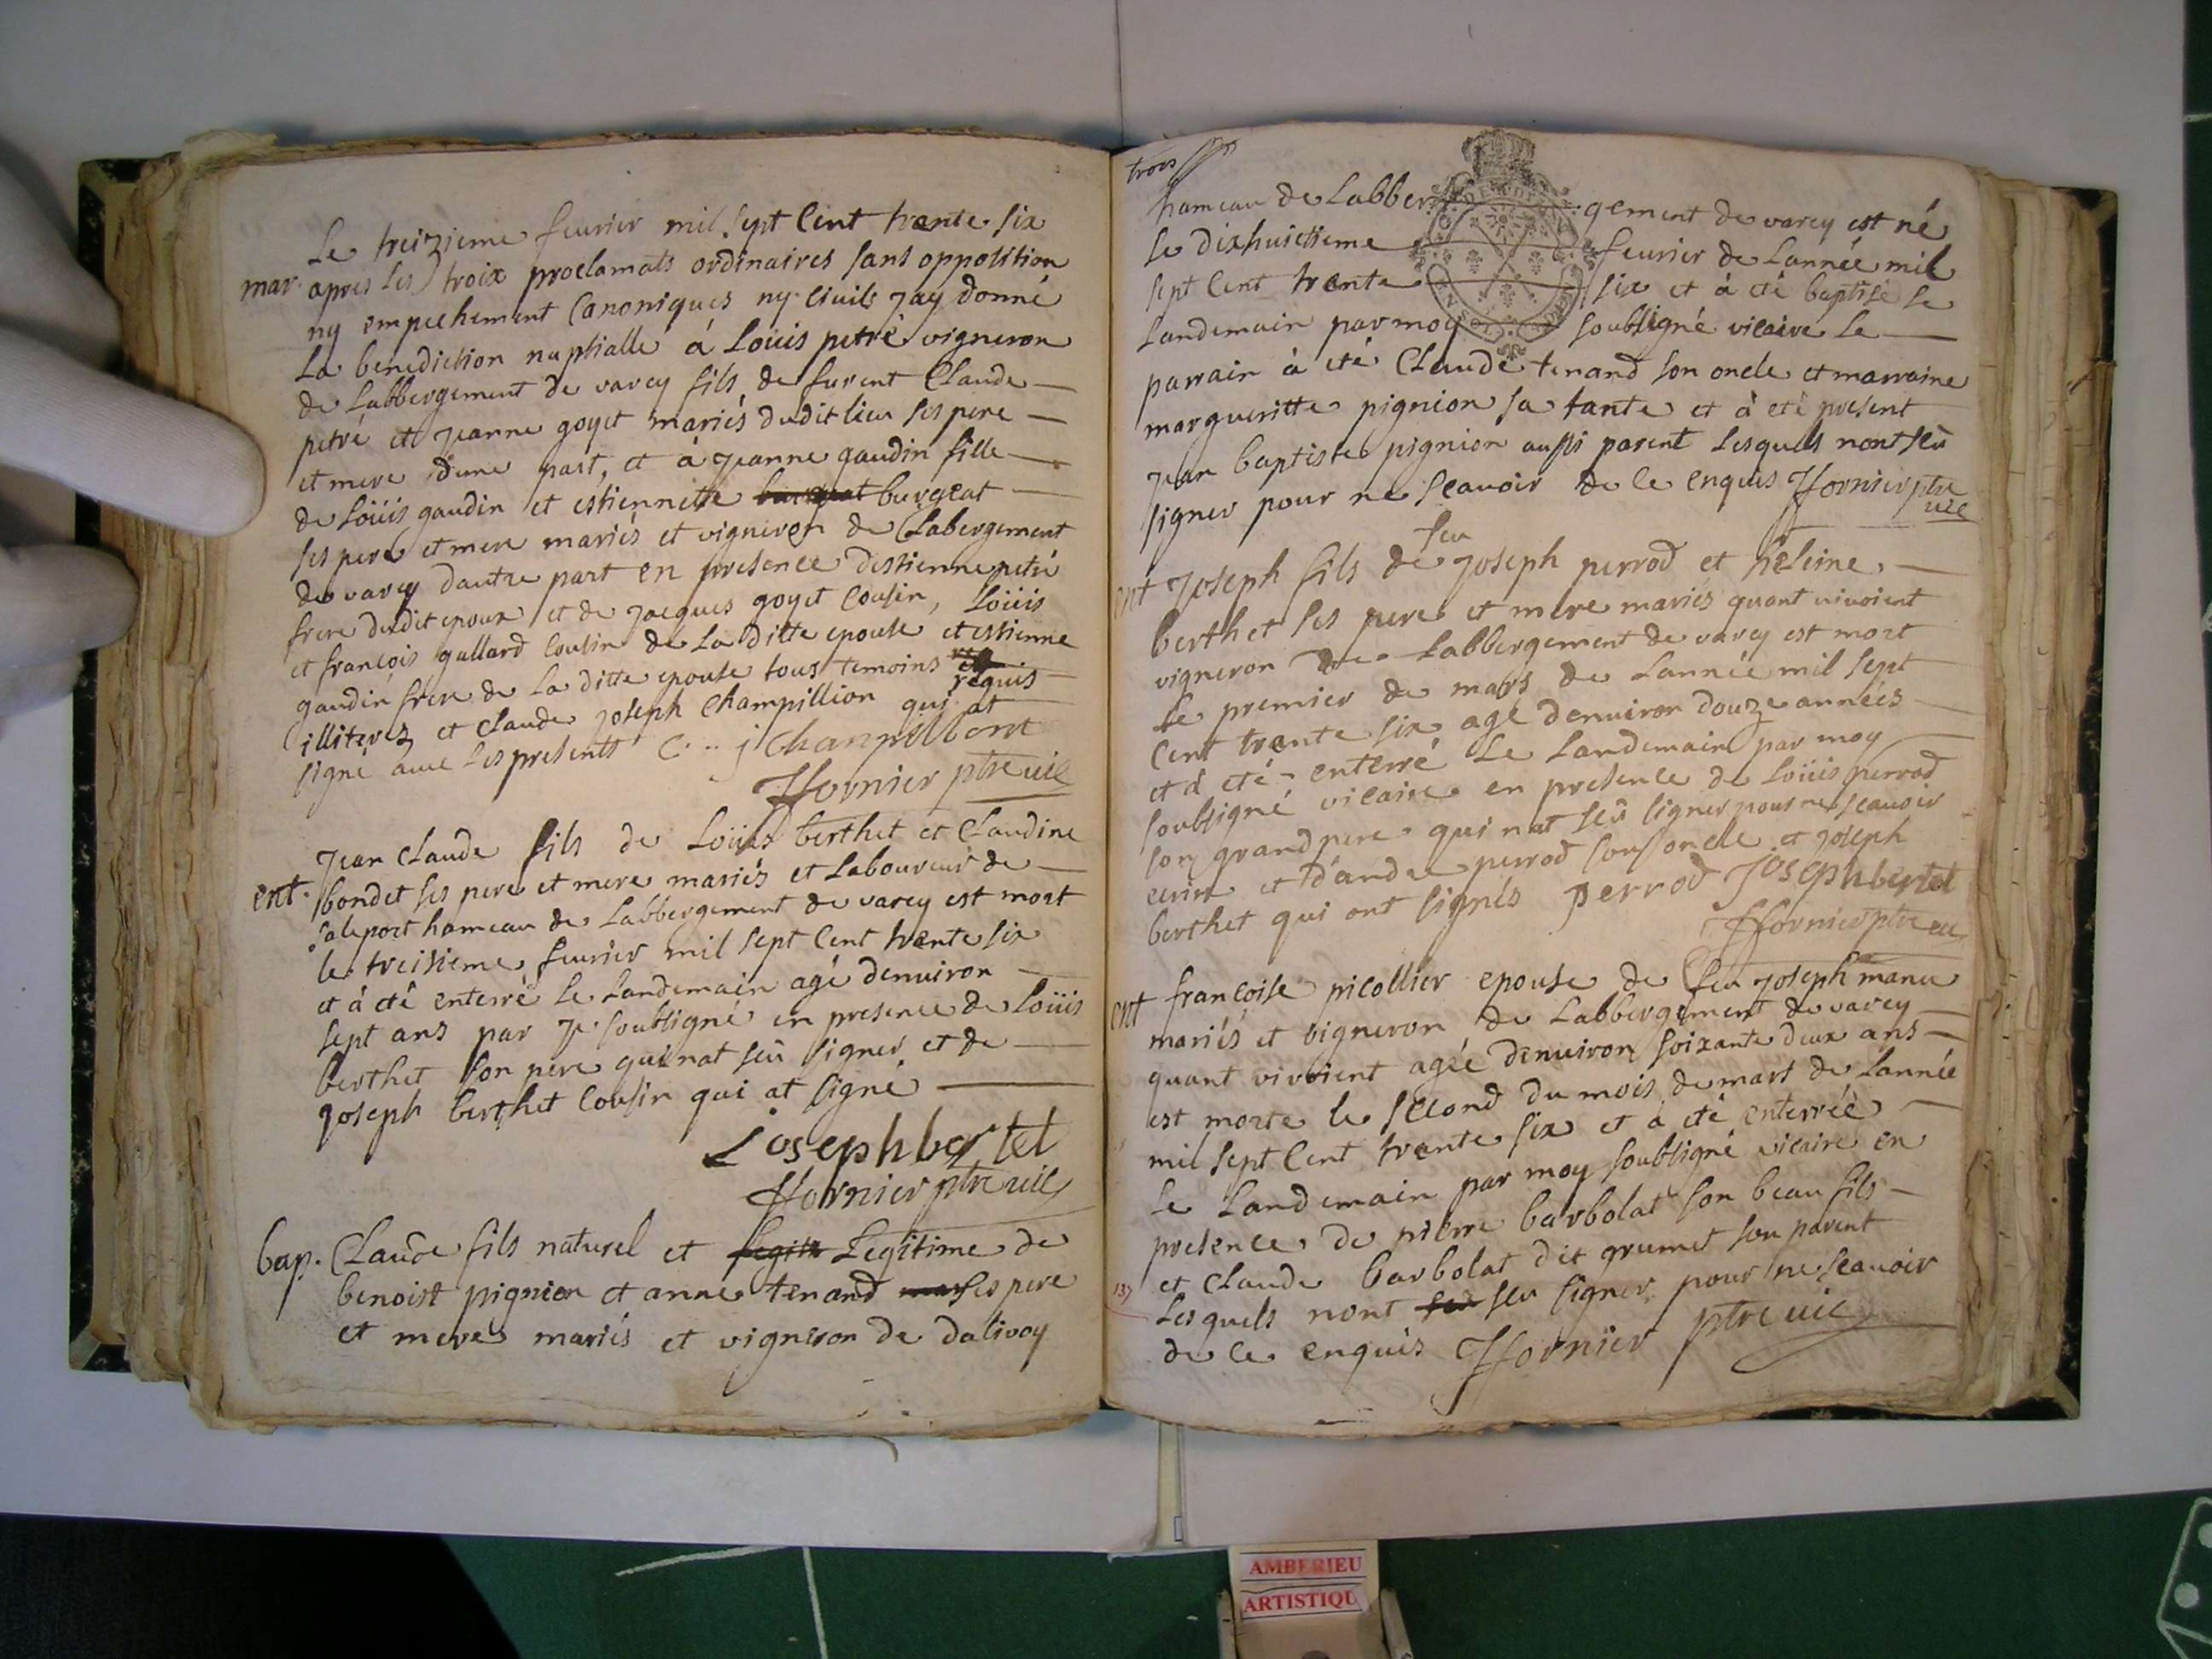 Le treizieme feurier mil sept Cent trante six
mar. apres les troix proclamats ordinaires sans opposition
ny empechement Canoniques ny Civils Jay donné
La benediction nuptialle à Loüis petré vigneron
de Labbergement de varey fils de furent Claude
petré et Jeanne goyet mariés dudit lieu ses pere
et mere dune part, et à Jeanne gaudin fille
de Loüis gaudin et estiennette burgeat
ses pere et mere mariés et vigneron de Labergement
de varey dautre part en presence destienne petré
frere dudit epoux et de Jacques goyet Cousin, Loüis
et françois gallard Cousin de La ditte epouse et estienne
gaudin frere de La ditte epouse tous temoins requis
illiterez et Claude Joseph Champillion qui at
signé avec Les presents C. j Champillont
ffornier ptre uic
Jean Claude fils de Loüis berthet et Claudine
ent. bondet ses pere et mere mariés et Laboureur de
Saleport hameau de Labbergement de varey est mort
le treisieme feurier mil sept Cent trante six
et à eté enterré Le Landemain agé denuiron
sept ans par Je soubsigné en presence de Loüis
berthet son pere qui nat seü signer et de
Joseph berthet Cousin qui at signé
Joseph bertet
ffornier ptre uic
bap. Claude fils naturel et Legitime de
benoist pignion et anne tenand ses pere
et mere mariés et vigneron de dalivoy
trois
hameau de Labbergement de varey est né
Le dixhuictieme feurier de Lannée mil
sept Cent trante six et à eté baptisé le
Landemain par moy soubsigné vicaire Le
parrain à eté Claude tenand son oncle et marraine
margueritte pignion sa tante et à eté present
Jean baptiste pignion aussi parent Lesquels nont seü
signer pour ne scauoir de ce enquis ffornier ptre
uic
ent Joseph fils de feu Joseph perrod et heleine
berthet ses pere et mere mariés quant vivoient
vigneron de Labbergement de varey est mort
Le premier de mars de Lannée mil sept
Cent trante six agé denuiron douze années
et à eté enterré Le Landemain par moy
soubsigné vicaire en presence de Loüis perrod
son grand pere qui nat seü signer pour ne scauoir
ecrire et dandré perrod son oncle et Joseph
berthet qui ont signés perrod Joseph bertet
ffornier ptre uic
ent françoise picollier epouse de feu Joseph manu
mariés et vigneron de Labbergement de varey
quant vivoient agée denuiron soixante deux ans
est morte le second du mois de mars de Lannée
mil sept Cent trante six et à eté enterrée
Le Landemain par moy soubsigné vicaire en
presence de pierre barbolat son beau fils
et Claude barbolat dit grumet son parent
Lesquels nont seu signer pour ne scauoir
de ce enquis ffornier ptre uic
137
AMBERIEU
ARTISTIQU